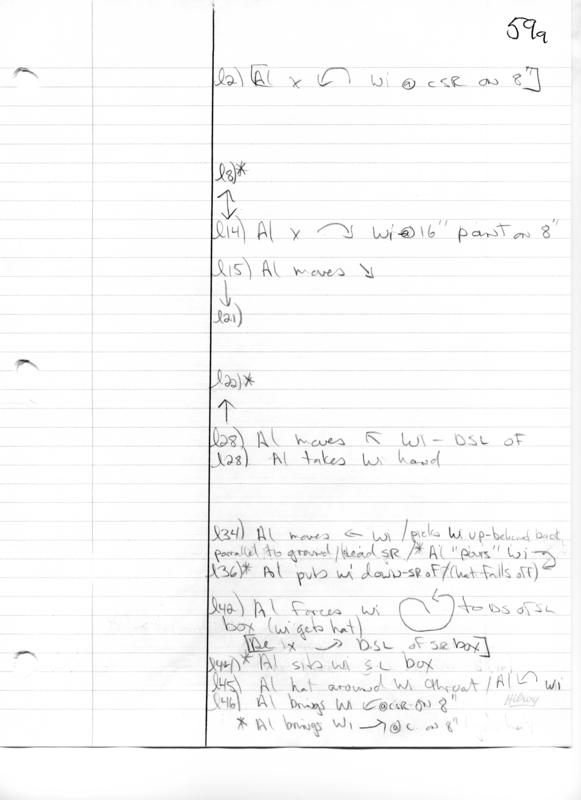 59a
l2) [Al x ↶ Wi @ CSR on 8"]
l8)*
↕
l14) Al x ↷ Wi @ 16" point on 8"
l15) Al moves ↘
↓
l21)
l22)*
↑
l28) Al moves ↖ Wi - DSL of
l28) Al takes Wi hand
l34) Al moves ← Wi / picks Wi up-behind back,
parallel to ground / head SR / * Al "pours" Wi
l36)* Al puts Wi down-SR of / (hat falls off)
l42) Al forces Wi to DS of SL
box (Wi gets hat)
[Be 1x → DSL of SR box]
l44)* Al sits Wi SL box
l45) Al hat around Wi throat / Al ↶ Wi
l46) Al brings Wi ↙ @ CSR on 8"
* Al brings Wi → @ C. on 8"
Hilroy